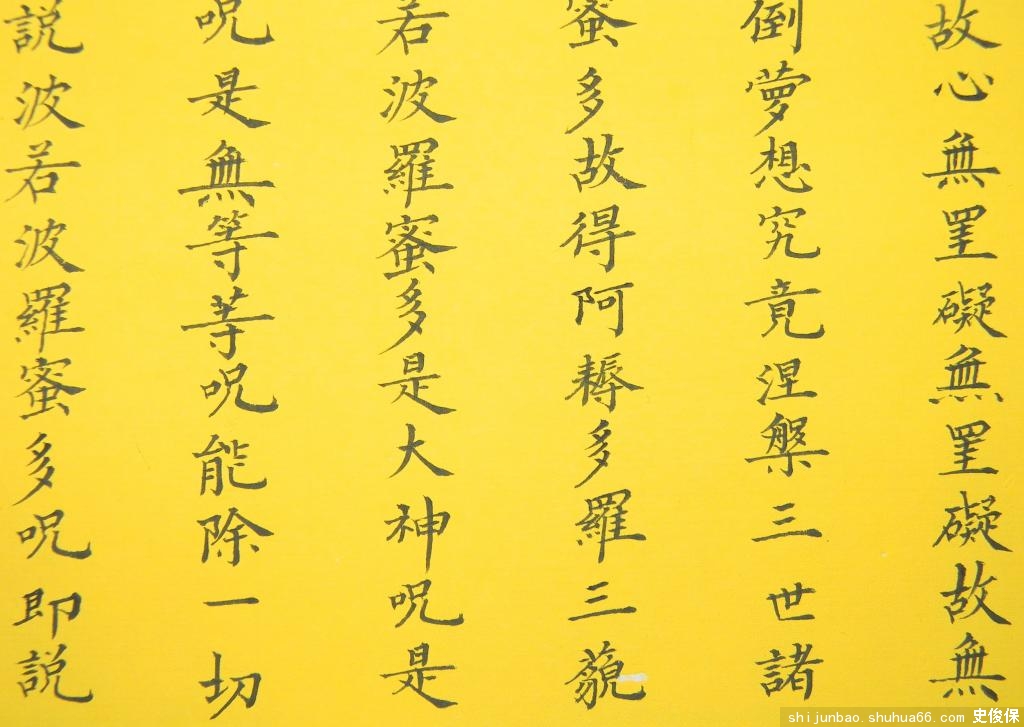 故心無罣礙無罣礙故無
倒夢想究竟涅槃三世諸
蜜多故得阿耨多羅三藐
若波羅蜜多是大神呪是
呪是無等等呪能除一切
説波若波羅蜜多呪即説
shijunbao.shuhua66.com 史俊保